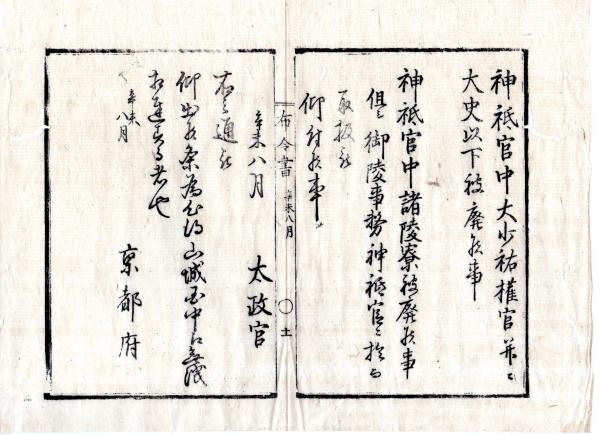 神祇官中大少祐権官并ニ
大史以下被廃候事
神祇官中諸陵寮被廃候事
但御陵事務神祇官ニ於而
取扱被
仰付候事
辛未八月
太政官
布令書 辛未八月 〇 土
右之通被
仰出候条為心得山城国中江無洩
相達するもの也
辛未
八月
京都府